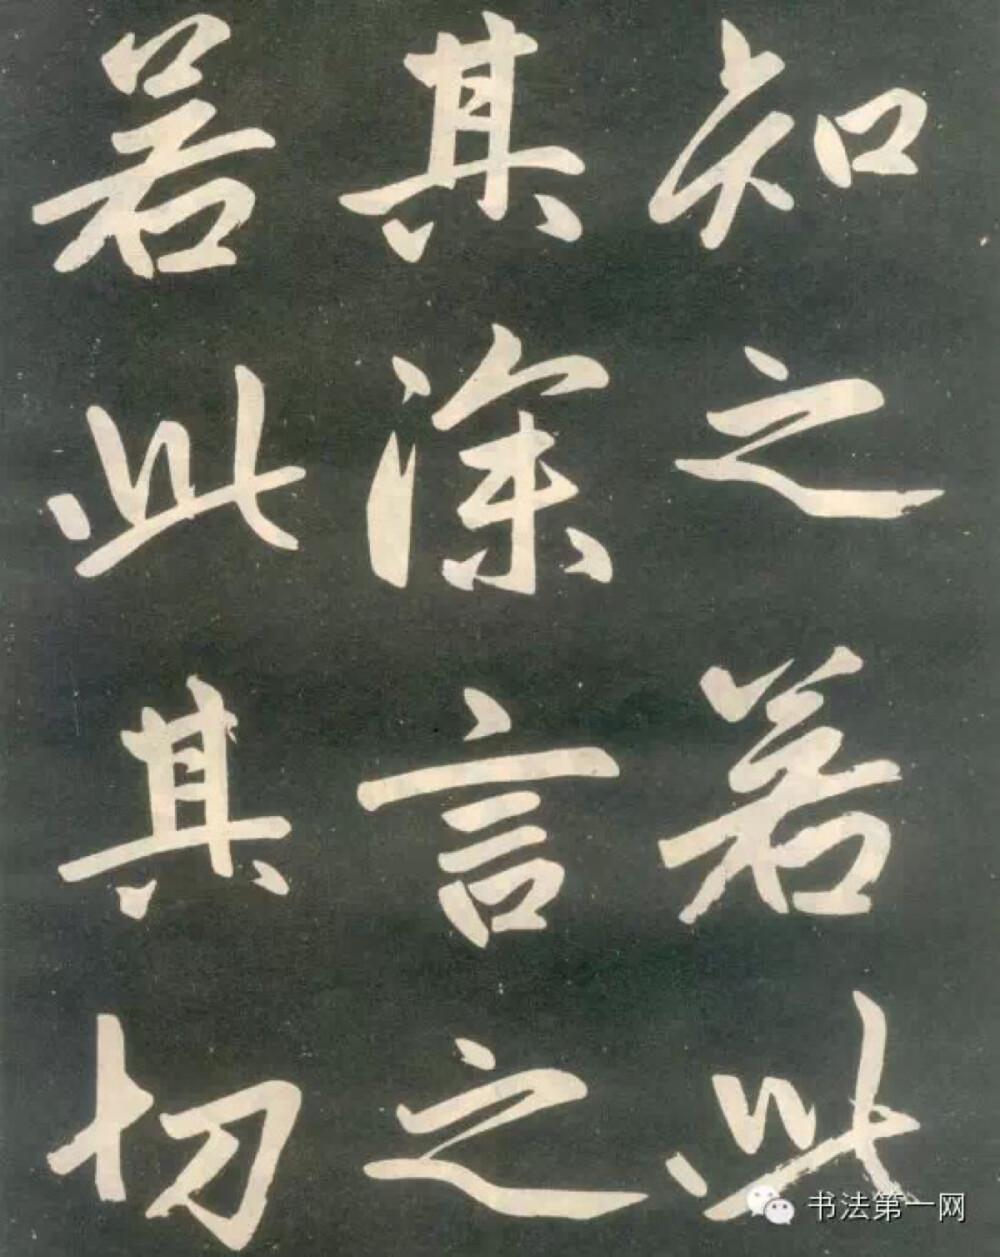 知之若此
其深言之
若此其切
书法第一网